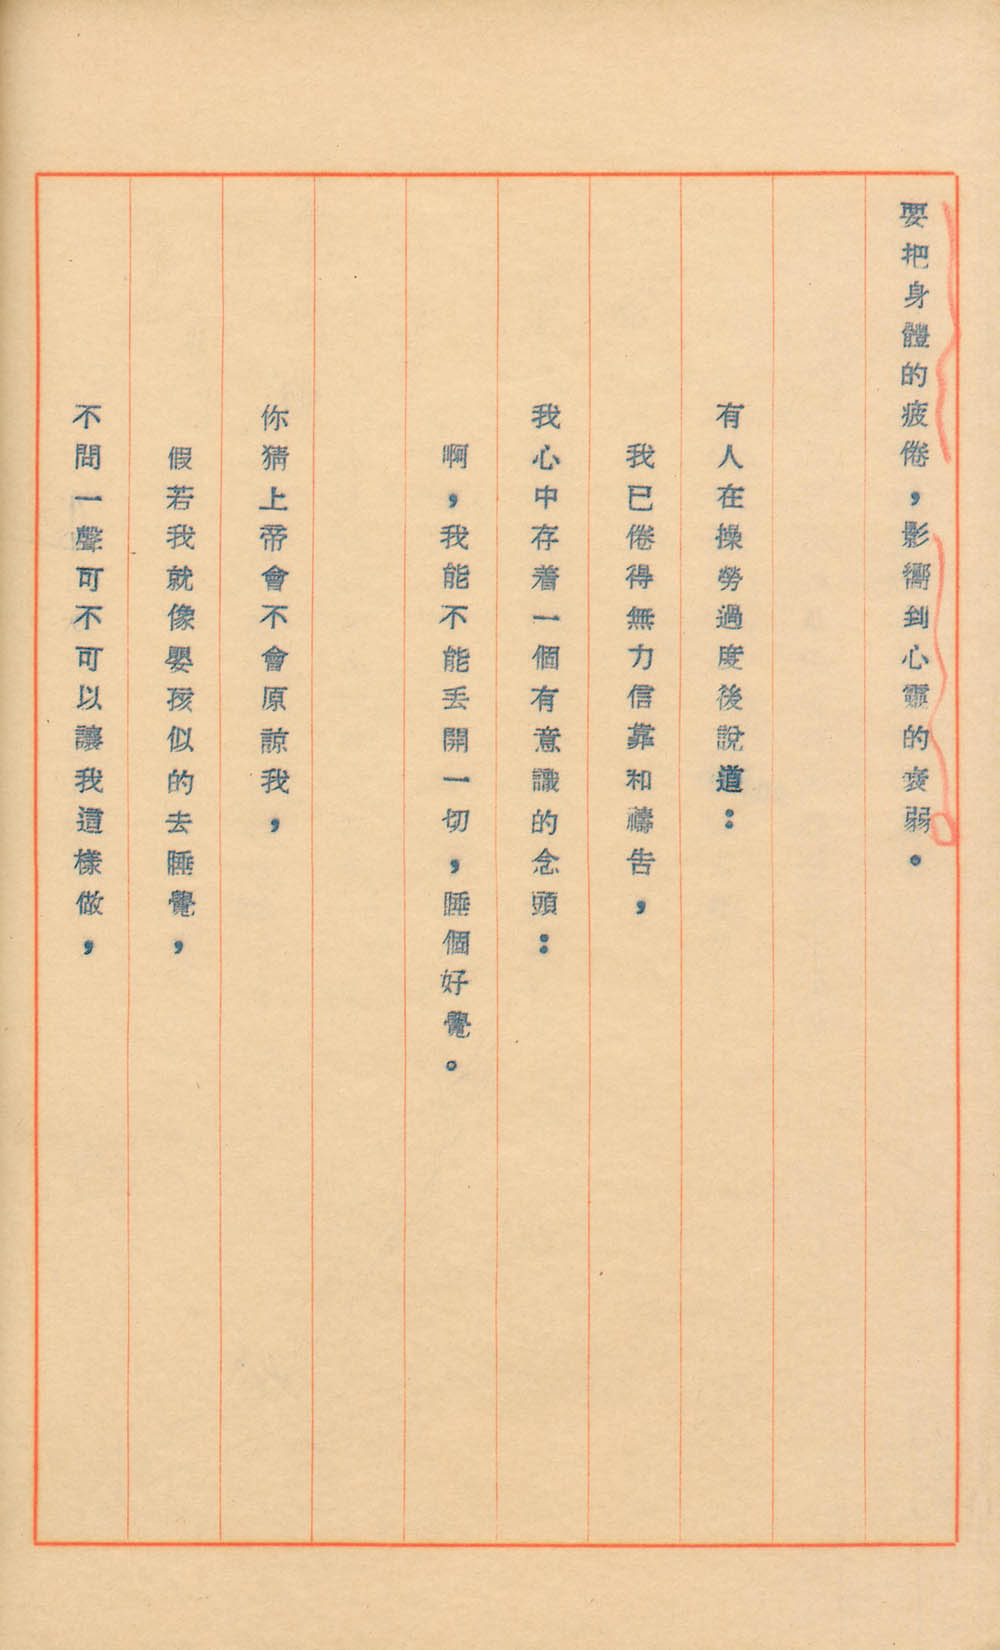 要把身體的疲倦，影嚮到心靈的衰弱。
有人在操勞過度後說道：
我已倦得無力信靠和禱告，
我心中存着一個有意識的念頭：
啊，我能不能丢開一切，睡個好覺。
你猜上帝會不會原諒我，
假若我就像嬰孩似的去睡覺，
不問一聲可不可以讓我這樣做，